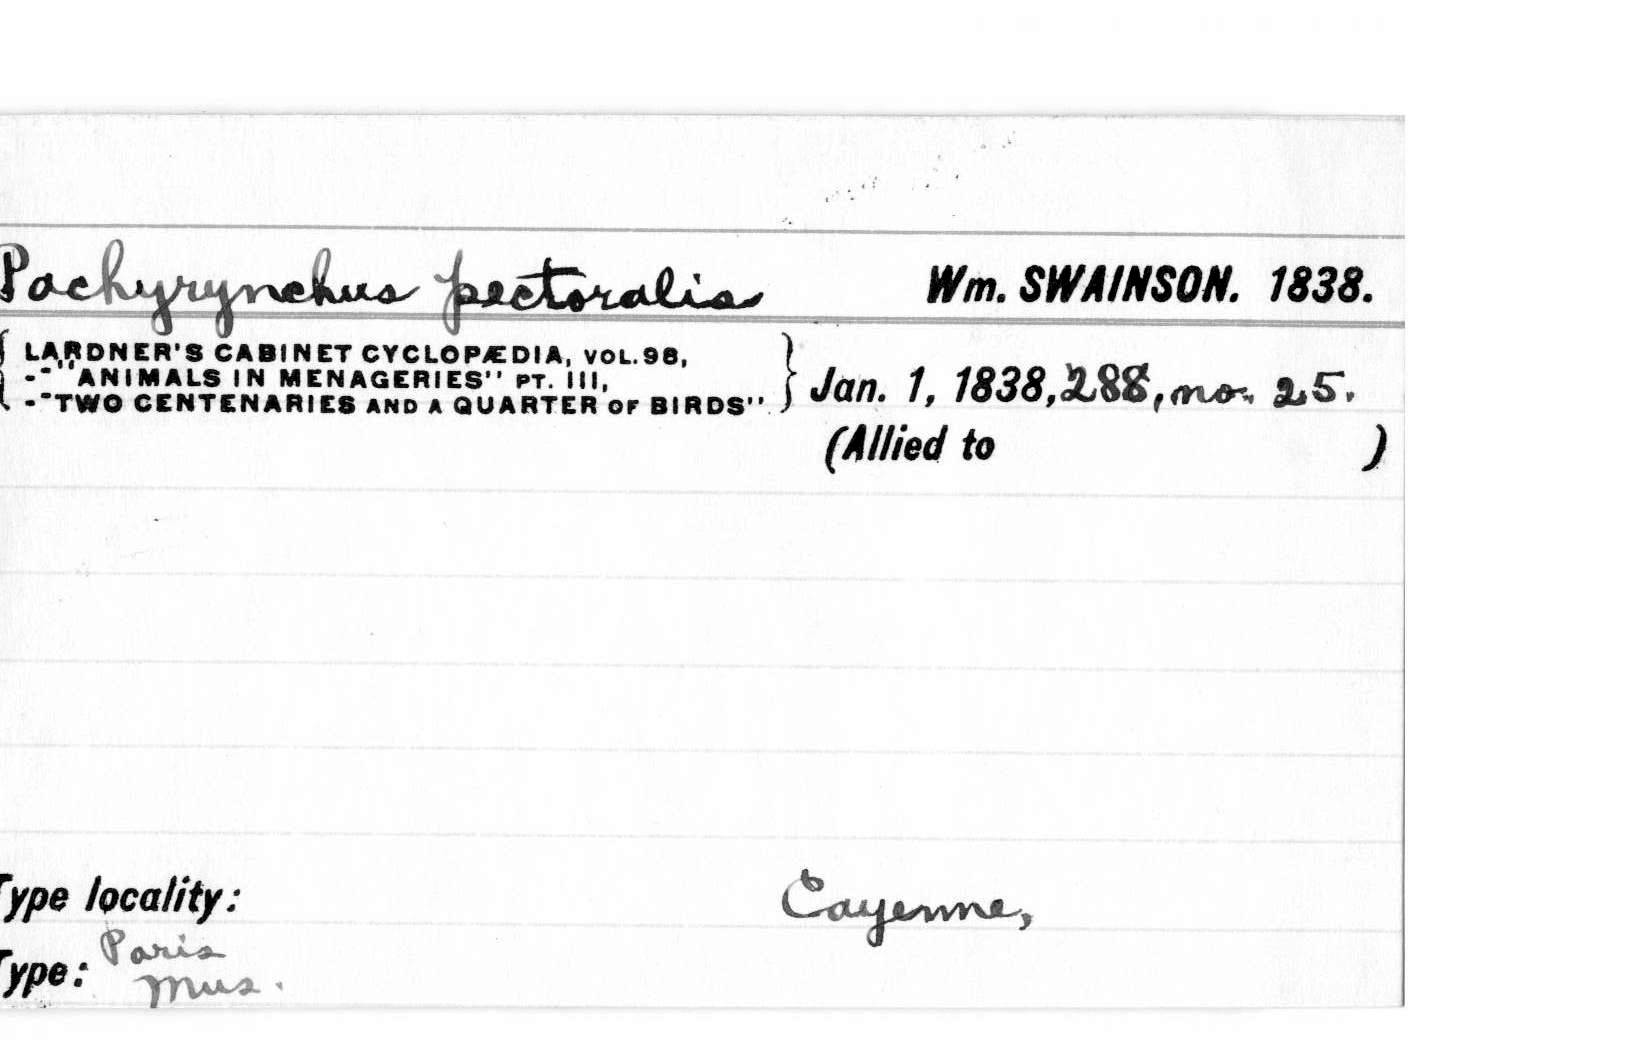 Pachyrynchus pectoralis Wm. SWAINSON. 1838.
{ LARDNER'S CABINET CYCLOPÆDIA, VOL. 98,
-"ANIMALS IN MENAGERIES" PT. III,
-"TWO CENTENARIES AND A QUARTER OF BIRDS" } Jan. 1, 1838, 288, no. 25.
(Allied to )
Type locality: Cayenne,
Type: Paris
Mus.